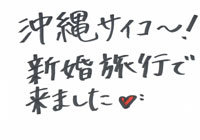 沖縄サイコ～!
新婚旅行で
来ました♥